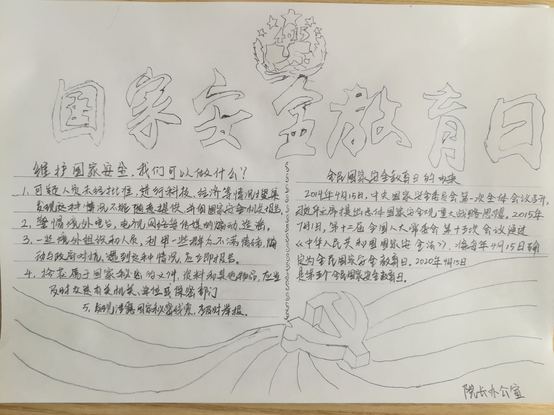 415
国家安全教育日
维护国家安全,我们可以做什么?
1.可疑人员未经批准,进行科技、经济等情况收集
发现这种情况不能随意提供,并向国家安全机关报告
2.警惕境外电台、电视、网络等传媒的煽动、造谣。
3.一些境外组织和人员,利用一些群众不满情绪,煽
动与政府对抗,遇到这种情况,应立即报告。
4.捡拾属于国家秘密的文件、资料和其他物品,应当
及时送交有关机关、单位或保密部门
5.发现泄露国家秘密线索,及时举报。
全民国家安全教育日的由来
2014年4月15日,中央国家安全委员会第一次全体会议召开,
提出总体国家安全观重大战略思想。2015年
7月1日,第十二届全国人大常委会第十五次会议通过
《中华人民共和国国家安全法》,将每年4月15日确
定为全民国家安全教育日。2020年4月15日
是第五个全民国家安全教育日。
院长办公室